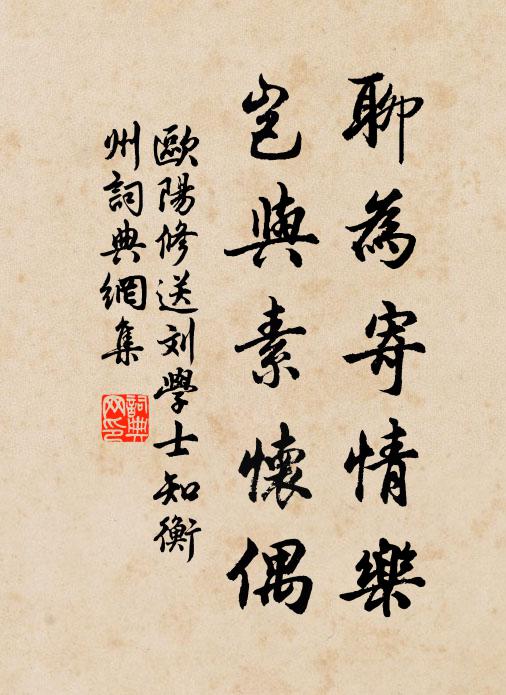 聊為寄情樂
豈與素懷偶
歐陽修送刘學士知衡
州詞典網集
詞典
网印